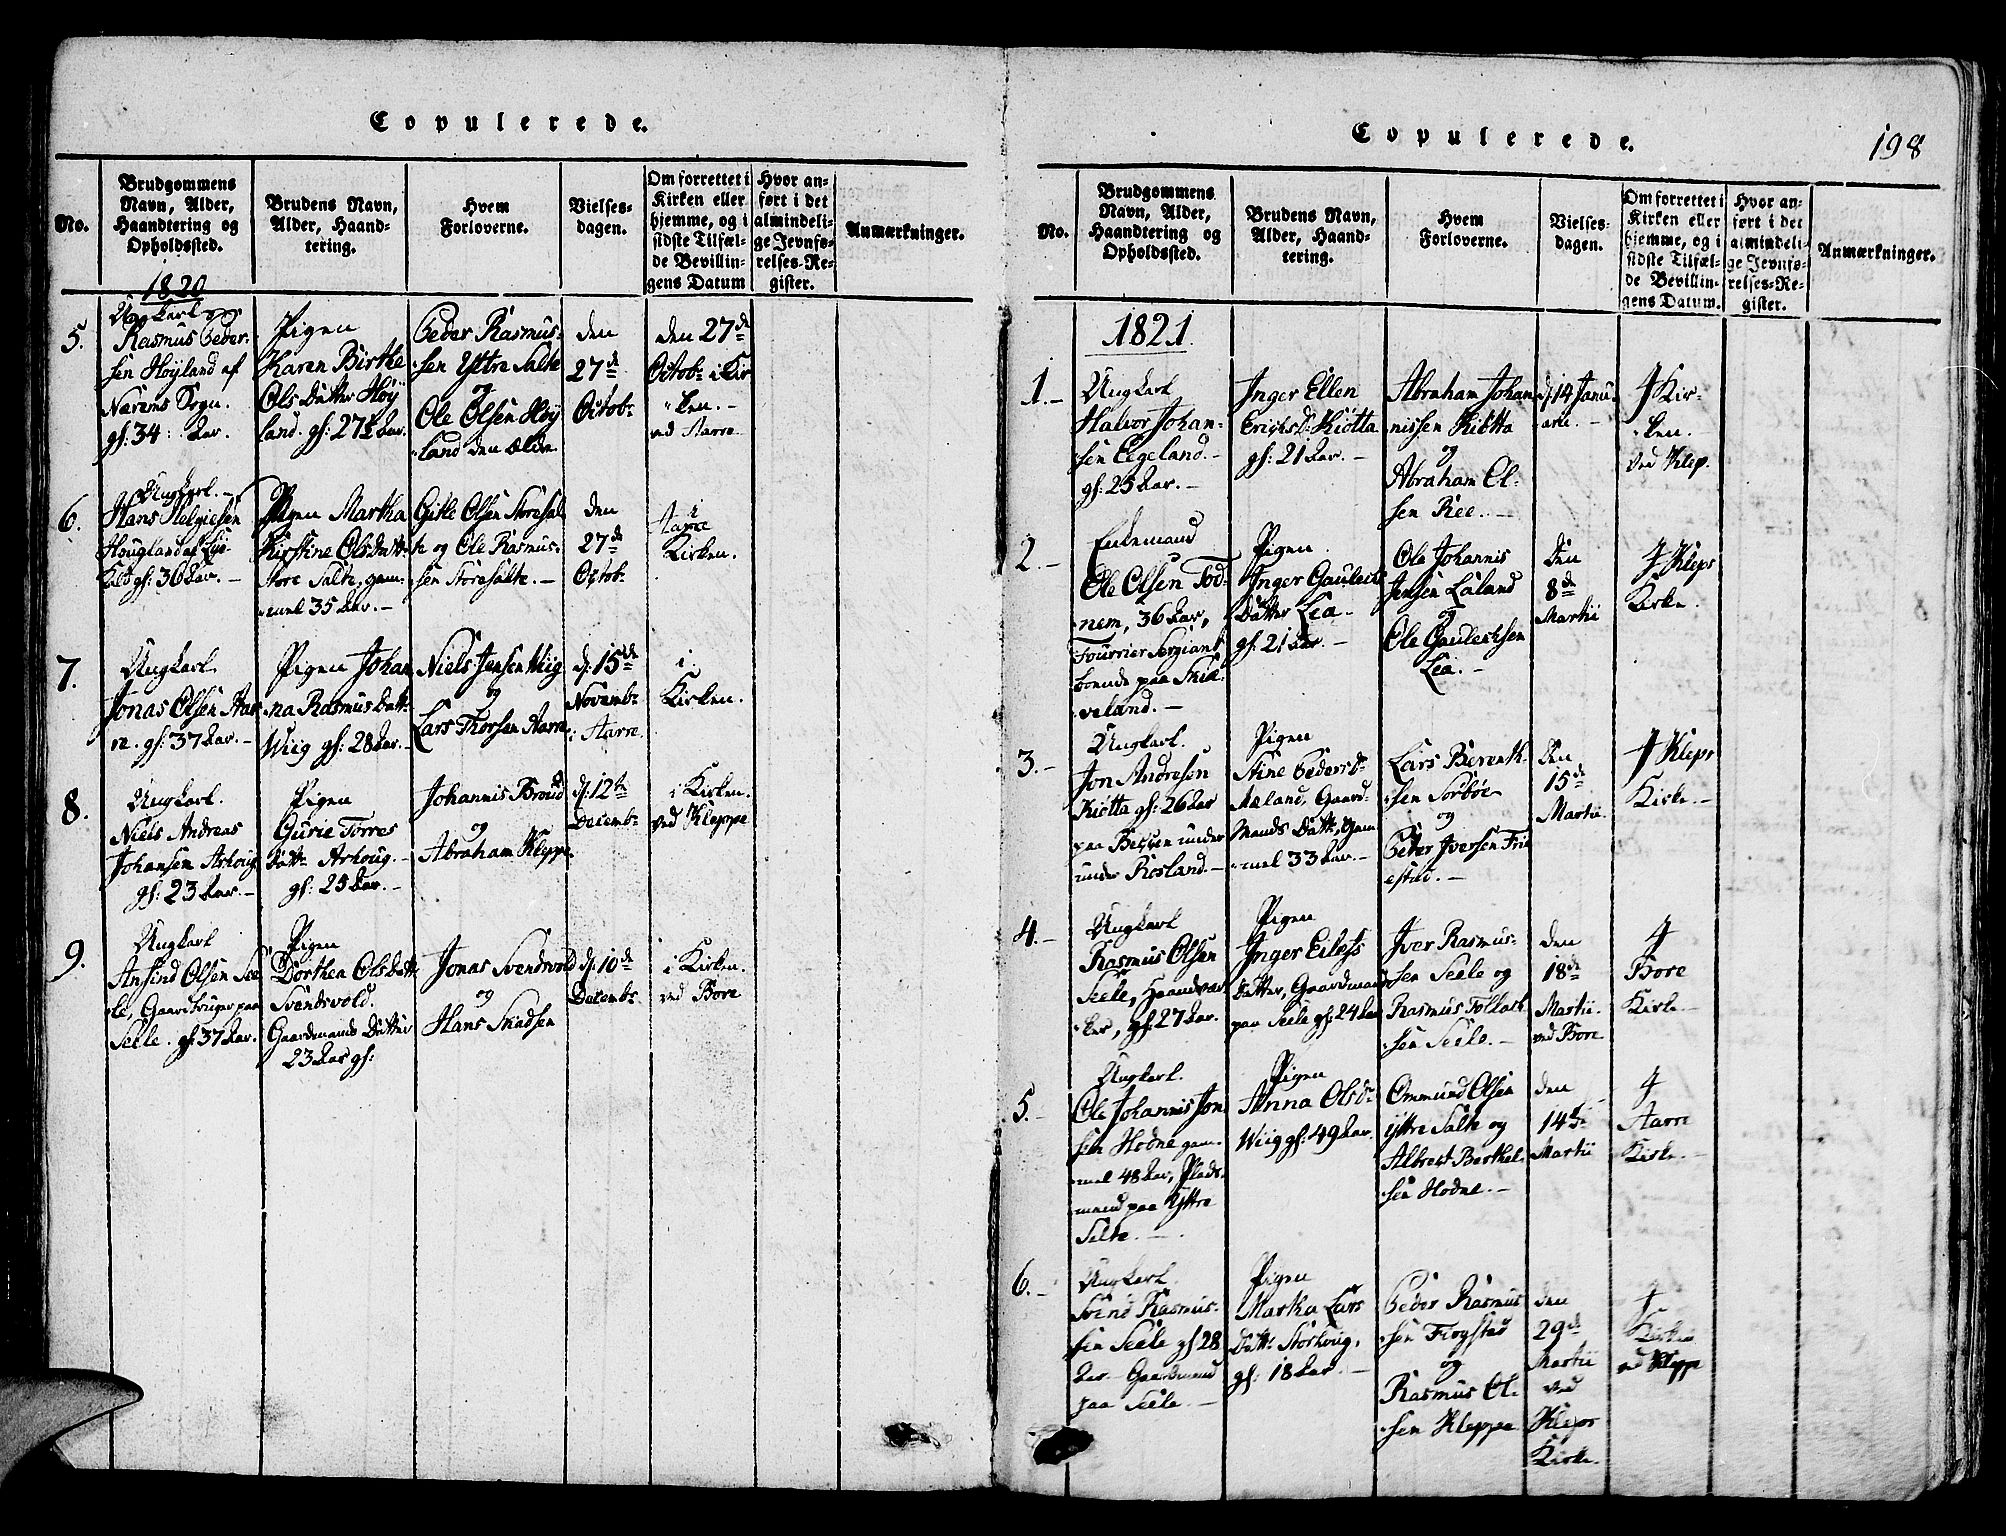 Copulerede.
No.
Brudgommens
Navn, Alder,
Haandtering og
Opholdssted.
Brudens Navn,
Alder, Haand-
tering.
Hvem
Forloverne.
Vielses-
dagen.
Om forrettet i
Kirken eller
hjemme, og i
sidste Tilfæl-
de Bevillin-
gens Datum
Hvor an-
ført i det
almindeli-
ge Jevnfø-
relses-Re-
gister.
Anmærkninger.
1820
5.
Ungkarl
Rasmus Peder-
sen Høyland af
Nærems Sogn.
gl: 34 Aar.
Pigen
Karen Birthe
Ols Datter Høy
land. gl: 27½ Aar.
Peder Rasmus-
sen Yttre Salte
og
Ole Olsen Høy
land den ælde
den
27de
Octobr
den 27de
Octobr i Kir
ken.
ved Aarre
6.
Ungkarl.
Hans Helgiesen
Hougland af Lye
gl: 36 Aar.
Pigen Martha
Kirstine Olsdatt:
Store Salte, gam-
mel 35 Aar.
Gitle Olsen Storesal
te og Ole Rasmus-
sen Storesalte.
den
27de
Octob:
i
Aarre
Kirken.
7.
Ungkarl.
Jonas Olsen Aar
re. gl: 37 Aar.
Pigen Johan
na Rasmus Datt:
Wiig gl: 28 Aar.
Niels Jensen Wiig
og
Lars Thorsen Aarre
d: 15de
Novemb:
i Aarre.
i
Kirken.
8.
Ungkarl.
Niels Andreas
Johansen Arhoug
gl: 23 Aar.
Pigen
Gurie Torres
Datt: Arhoug.
gl: 25 Aar.
Johannis Broud
og
Abraham Kleppe
d: 12te
Decemb:
i Kirken.
ved Kleppe
9.
Ungkarl
Ansind Olsen See
le, Gaardbruger paa
Seele. gl: 37 Aar.
Pigen
Dorthea Olsdatt:
Svendsvold.
Gaardmands Datter
23 Aar gl:
Jonas Svendsvold
og
Hans Skadsen
d: 10de
Decemb:
i Kirken.
ved Bore
Copulerede.
198
No.
Brudgommens
Navn, Alder,
Haandtering og
Opholdssted.
Brudens Navn,
Alder, Haand-
tering.
Hvem
Forloverne.
Vielses-
dagen.
Om forrettet i
Kirken eller
hjemme, og i
sidste Tilfæl-
de Bevillin-
gens Datum.
Hvor an-
ført i det
almindeli-
ge Jevnfø-
relses-Re-
gister.
Anmærkninger.
1821.
1.
Ungkarl
Halvor Johan-
sen Eegeland.
gl: 25 Aar.
Inger Ellen
Erichsd: Kiøtta
gl: 21 Aar.
Abraham Johan
nissen Kiøtta
og
Abraham Ol-
sen Ree.
d: 14 Janu-
arii.
I Kir-
ken.
ved Klep.
2.
Enkemand
Ole Olsen Tod-
nem, 36 Aar,
Fourrier Sergiant
boende paa Skie-
veland.
Pigen
Inger Gauteds
Datter Lea
gl: 21 Aar.
Ole Johannis
Jensen Laland
og
Ole Gautedsen
Lea.
Den
8de
Martii
I Kleps
Kirke.
3.
Ungkarl.
Jon Andresen
Kiøtta gl: 26 Aar
paa under
under Rosland.
Pigen
Stine Pedersd:
Mæland, Gaard-
mands Datt:, gam
mel 33 Aar.
Lars Berenth-
sen Sørbøe
og
Peder Iversen Fri
estad.
Den
15de
Martii.
I Kleps
Kirke.
4.
Ungkarl
Rasmus Olsen
Seele, Haandvær
ker, gl: 27 Aar.
Pigen
Inger Eilefs
Datter, Gaardmand
paa Seele gl: 24 Aar
Iver Rasmus-
sen Seele og
Rasmus Tollach
sen Seele.
den
18de
Martii.
ved Bore
I
Bore
Kirke.
5.
Ungkarl.
Ole Johannis Jon
sen Hodne gam-
mel 48 Aar, Plads-
mand paa Yttre
Salte.
Pigen
Anna Olsd:
Wiig gl: 49 Aar.
Ommund Olsen
Yttre Salte og
Albregt Berthel-
sen Hodne.
den
14de
Martii
I
Aarre
Kirke.
6.
Ungkarl.
Svend Rasmus-
sen Seele gl 28
Aar Gaardmand
paa Seele
Pigen
Martha Lars
Datt: Storhoug,
gl: 18 Aar.
Peder Rasmus
sen Frøystad
og
Rasmus Ol-
sen Kleppe
den
29de
Martii
ved
Kleps
Kirke.
I
Kirken
ved Klepp